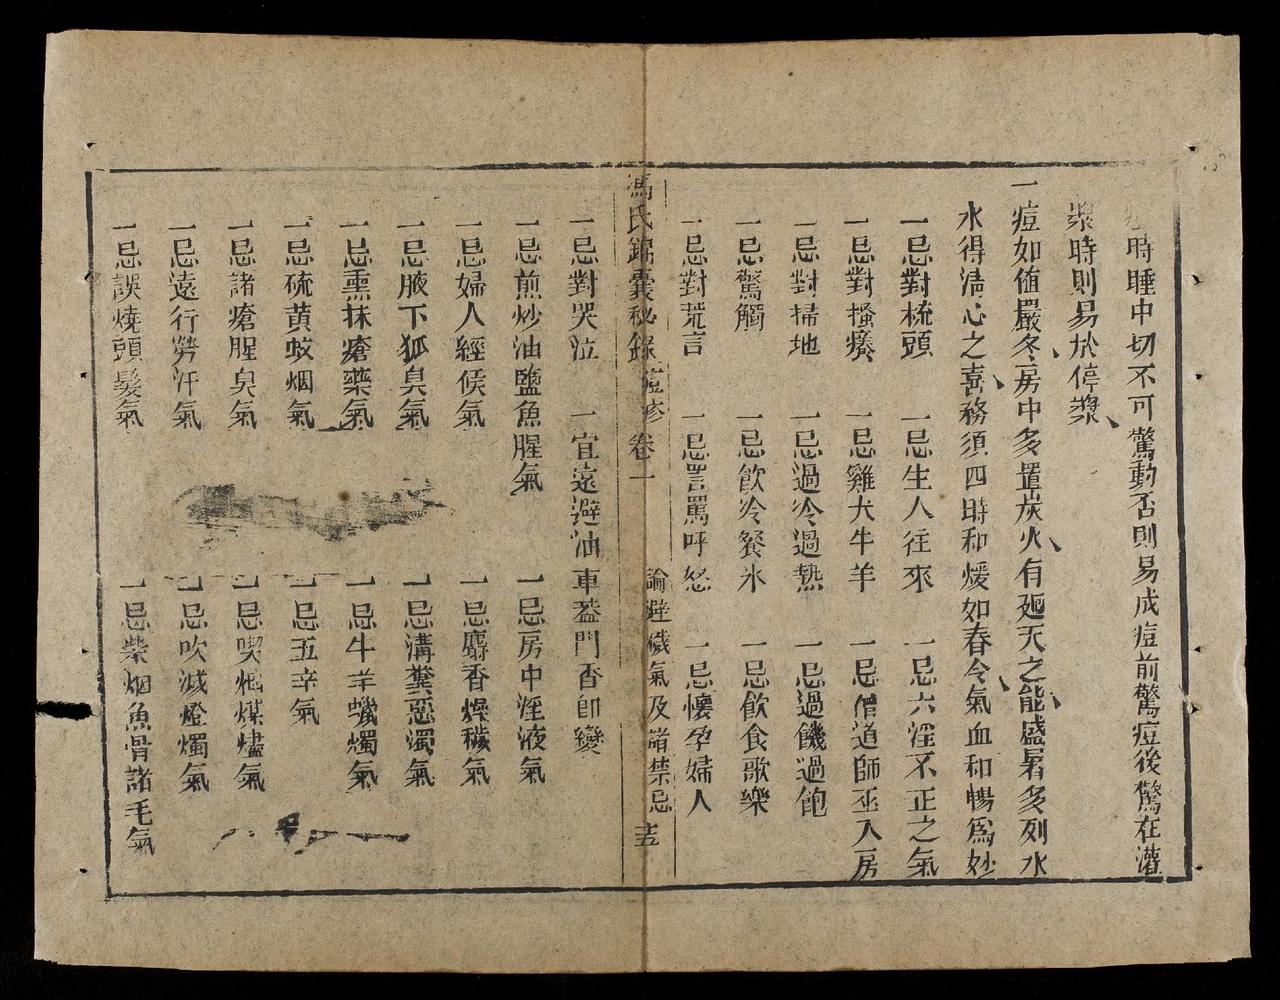 時睡中切不可驚動否則易成痘前驚痘後驚在灌
漿時則易於停漿
一痘如値嚴冬房中多置炭火有廻天之能盛暑多列水
水得淸心之喜務須四時和煖如春令氣血和暢爲妙
一忌對梳頭 一忌生人往來 一忌六淫不正之氣
一忌對搔癢 一忌雞犬牛羊 一忌僧道師巫入房
一忌對掃地 一忌過冷過熱 一忌過饑過飽
一忌驚觸 一忌飮冷餐氷 一忌飮食歌樂
一忌對荒言 一忌詈罵呼怒 一忌懷孕婦人
馮氏錦囊秘錄 痘疹 卷一 論避穢氣及諸禁忌 十五
一忌對哭泣 一宜遠避油車蓋門香卽變
一忌煎炒油鹽魚腥氣 一忌房中淫液氣
一忌婦人經候氣 一忌麝香燥穢氣
一忌腋下狐臭氣 一忌溝糞惡濁氣
一忌熏抹瘡藥氣 一忌牛羊蠟燭氣
一忌硫黄蚊烟氣 一忌五辛氣
一忌諸瘡腥臭氣 一忌喫烟煤燼氣
一忌遠行勞汗氣 一忌吹滅燈燭氣
一忌誤燒頭髮氣 一忌柴烟魚骨諸毛氣